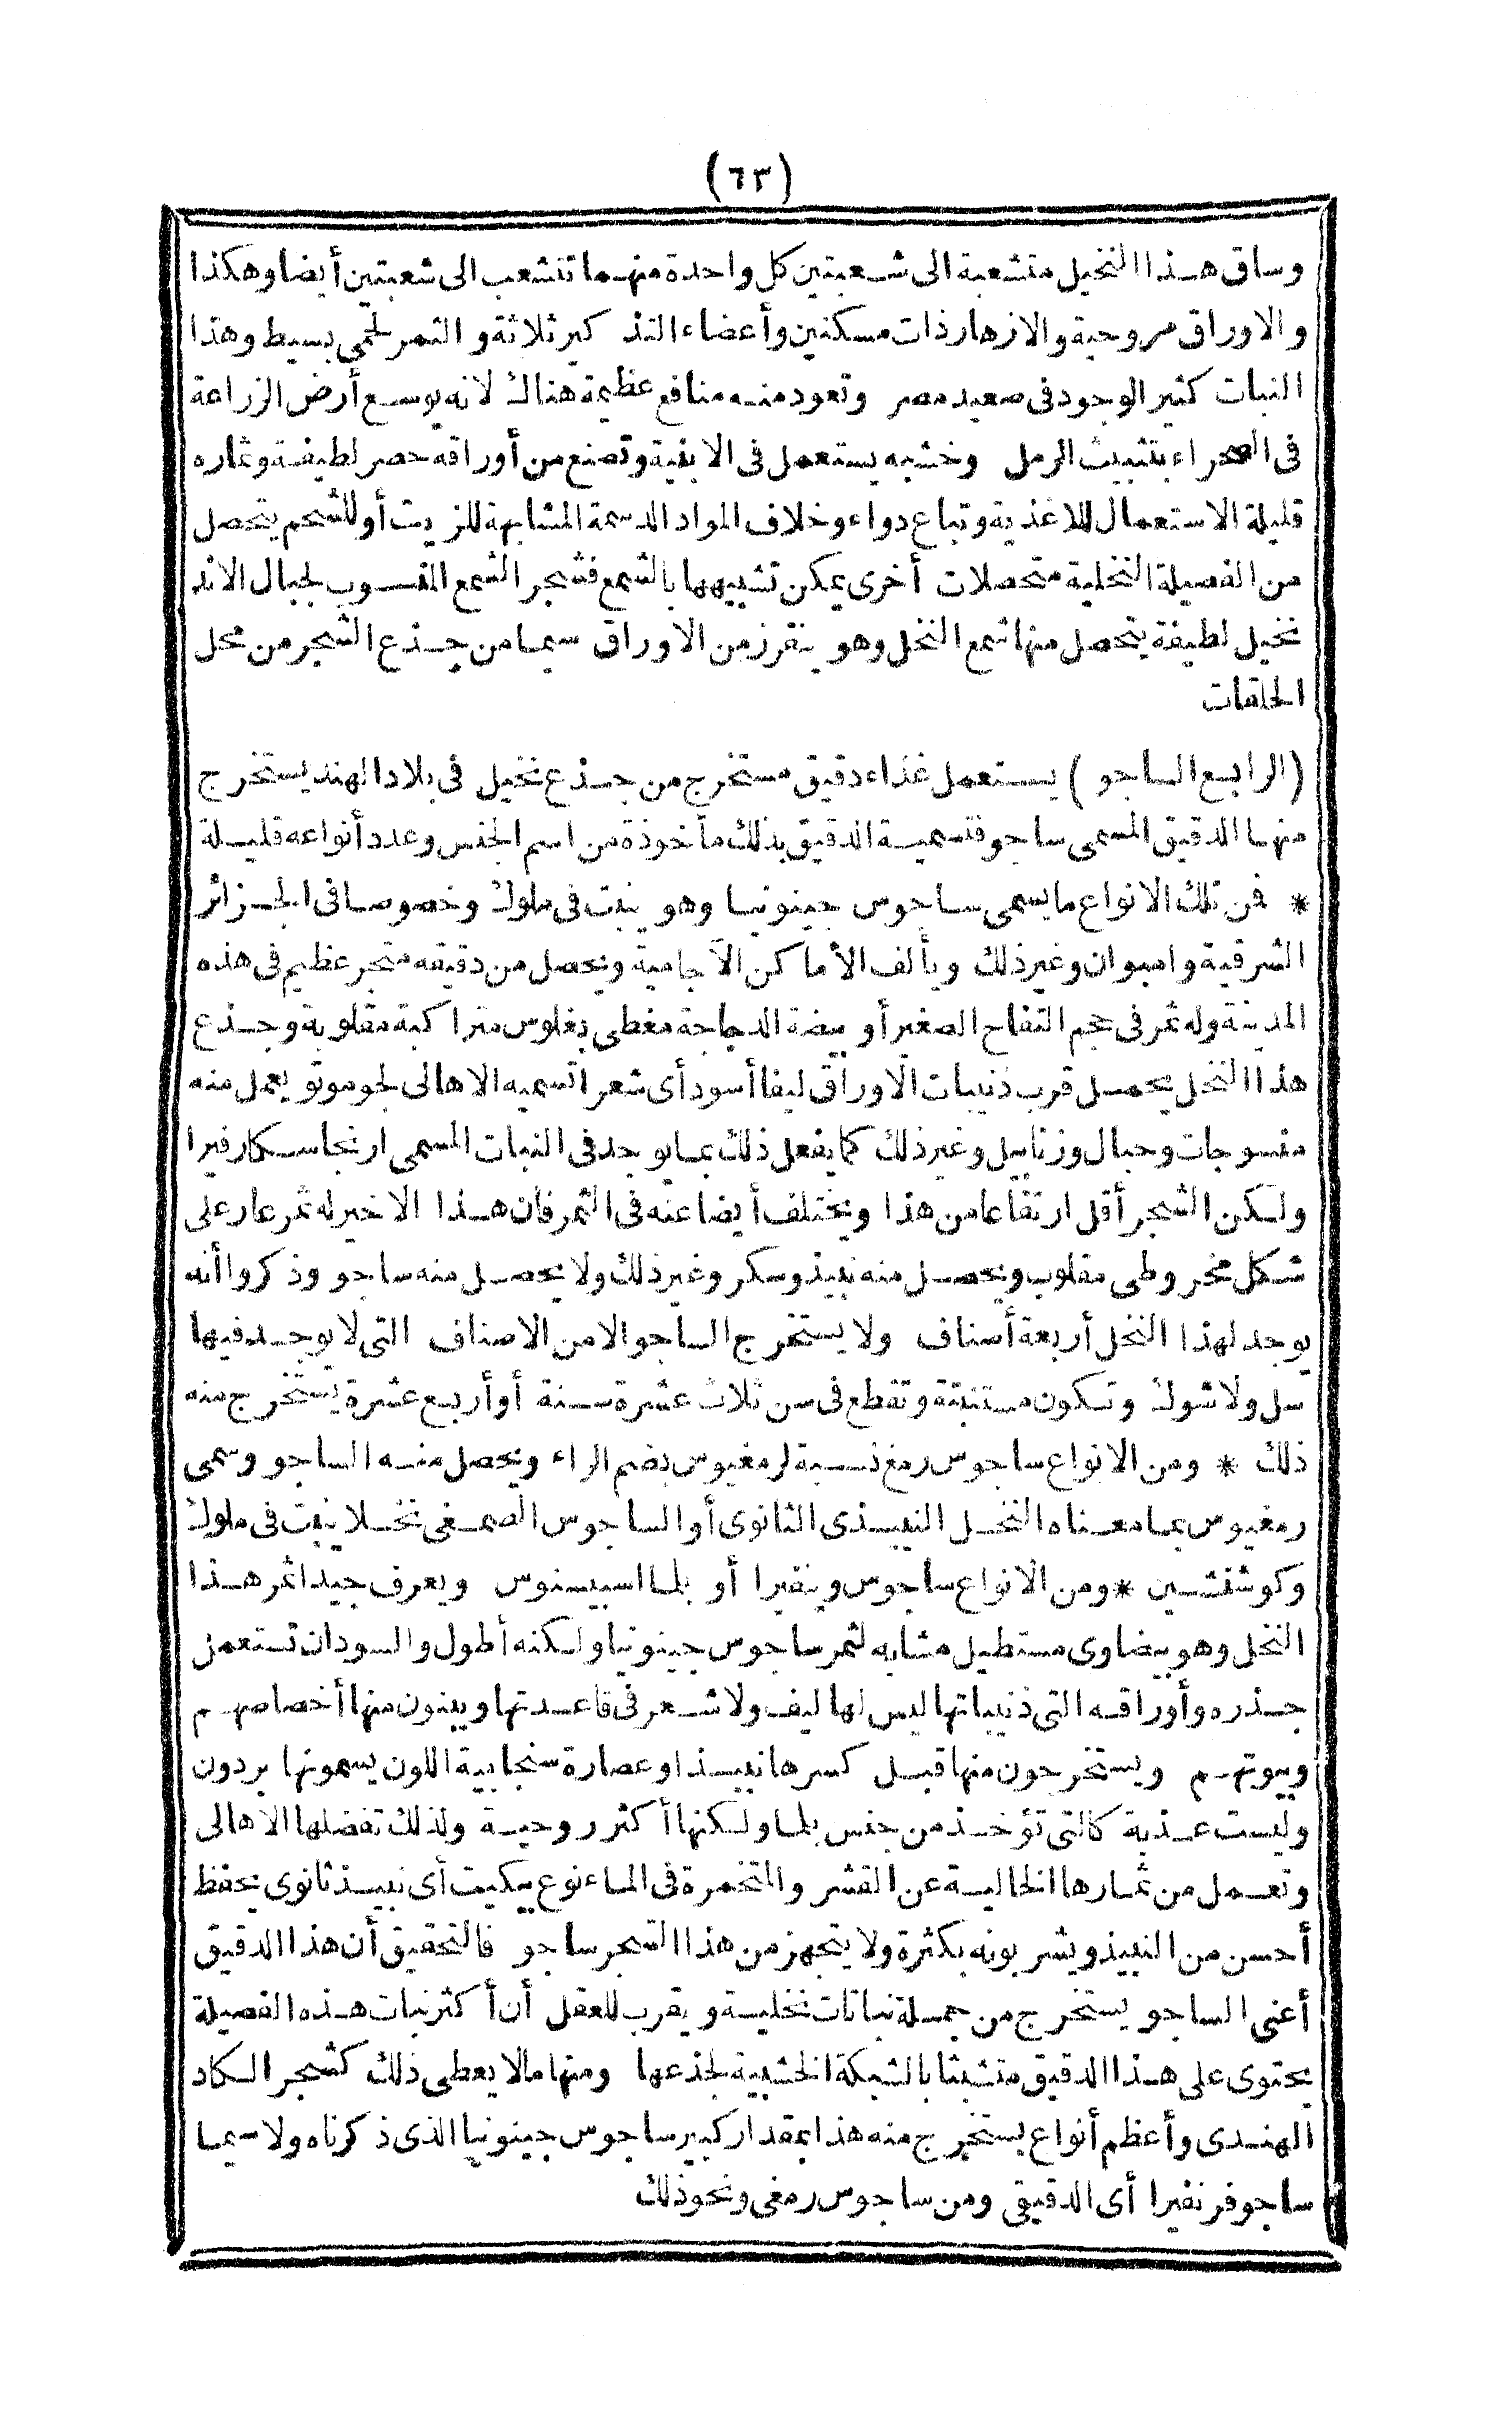 (٦٣)
وساق هذا النخيل متشعبة الى شعبتين كل واحدة منهما تتشعب الى شعبتين أيضا وهكذا
والاوراق مروحية والازهار ذات مسكنين وأعضاء التذكير ثلاثة والثمر لحمى بسيط وهذا
النبات كثير الوجود فى صعيد مصر وتعود منه منافع عظيمة هناك لانه يوسع أرض الزراعة
فى الصحراء بتثبيت الرمل وخشبه يستعمل فى الابنية وتصنع من أوراقه حصر لطيفة وثماره
قليلة الاستعمال للاغذية وتباع دواء وخلاف المواد الدسمة المشابهة للزيت أو للشحم يتحصل
من الفصيلة النخلية متحصلات أخرى يمكن تشبيهها بالشمع فشجر الشمع المنسوب لجبال الاند
نخيل لطيفة يتحصل منها شمع النخل وهو ينفرز من الاوراق سيما من جذع الشجر من محل
الحلقات
(الرابع الساجو) يستعمل غذاء دقيق مستخرج من جذع نخيل فى بلاد الهند يستخرج
منها الدقيق المسمى ساجو فتسمية الدقيق بذلك مأخوذة من اسم الجنس وعدد أنواعه قليلة
* فمن تلك الانواع ما يسمى ساجوس جينونيا وهو ينبت فى ملوك وخصوصا فى الجزائر
الشرقية وامبوان وغير ذلك ويألف الأماكن الآجامية ويحصل من دقيقه متجر عظيم فى هذه
المدينة وله ثمر فى حجم التفاح الصغير أو بيضة الدجاجة مغطى بفلوس متراكبة مقلوبة وجذع
هذا النخل يحمل قرب ذنيبات الاوراق ليفا أسود أى شعرا تسميه الاهالى لجوموتو يعمل منه
منسوجات وحبال وزنابيل وغير ذلك كما يفعل ذلك بما يوجد فى النبات المسمى ارنجاسكارفيرا
ولكن الشجر أقل ارتفاعا من هذا ويختلف أيضا عنه فى الثمر فان هذا الاخير له ثمر عار على
شكل مخروطى مقلوب ويحصل منه نبيذ وسكر وغير ذلك ولا يحصل منه ساجو وذكروا أنه
يوجد لهذا النخل أربعة أصناف ولا يستخرج الساجو الا من الاصناف التى لا يوجد فيها
سل ولا شوك وتكون مستنبتة وتقطع فى سن ثلاث عشرة سنة أو أربع عشرة يستخرج منه
ذلك * ومن الانواع ساجوس رمغ نسبة لرمغيوس بضم الراء ويحصل منه الساجو وسمى
رمغيوس بما معناه النخل النبيذى الثانوى أو الساجوس الصمغى نخلا ينبت فى ملوك
وكوشنشين * ومن الانواع ساجوس وينفيرا أو بلما اسبينوس ويعرف جيدا ثمر هذا
النخل وهو بيضاوى مستطيل مشابه لثمر ساجوس جينونيا ولكنه أطول والسودان تستعمل
جذره وأوراقه التى ذنيباتها ليس لها ليف ولا شعر فى قاعدتها ويبنون منها أخصاصهم
وبيوتهم ويستخرجون منها قبل كسرها نبيذا وعصارة سنجابية اللون يسمونها بردون
وليست عذبة كالتى تؤخذ من جنس بلما ولكنها أكثر روحية ولذلك تفضلها الاهالى
وتعمل من ثمارها الخالية عن القشر والمتخمرة فى الماء نوع بيكيت أى نبيذ ثانوى يحفظ
أحسن من النبيذ ويشربونه بكثرة ولا يتجهز من هذا الشجر ساجو فالتحقيق أن هذا الدقيق
أعنى الساجو يستخرج من جملة نباتات نخلية ويقرب للعقل أن أكثر نبات هذه الفصيلة
يحتوى على هذا الدقيق متشبثا بالشبكة الخشبية لجذعها ومنها ما لا يعطى ذلك كشجر الكاد
الهندى وأعظم أنواع يستخرج منه هذا بمقدار كبير ساجوس جينونيا الذى ذكرناه ولا سيما
ساجو فرنفيرا أى الدقيقى ومن ساجوس رمغى ونحو ذلك